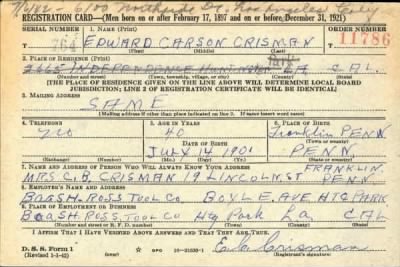 7/6/42
REGISTRATION CARD—(Men born on or after February 17, 1897 and on or before December 31, 1921)
SERIAL NUMBER 1. NAME (Print) ORDER NUMBER
T 764 EDWARD CARSON CRISMAN 11786
(First) (Middle) (Last)
2. PLACE OF RESIDENCE (Print)
2665 INDEPENDENCE HUNTINGTON LA CAL.
(Number and street) (Town, township, village, or city) (County) (State)
[THE PLACE OF RESIDENCE GIVEN ON THE LINE ABOVE WILL DETERMINE LOCAL BOARD
JURISDICTION; LINE 2 OF REGISTRATION CERTIFICATE WILL BE IDENTICAL]
3. MAILING ADDRESS
SAME
[Mailing address if other than place indicated on line 2. If same insert word same]
4. TELEPHONE 5. AGE IN YEARS 6. PLACE OF BIRTH
40 Franklin PENN.
DATE OF BIRTH (Town or county)
JULY 14 1901 PENN.
(Exchange) (Number) (Mo.) (Day) (Yr.) (State or country)
7. NAME AND ADDRESS OF PERSON WHO WILL ALWAYS KNOW YOUR ADDRESS FRANKLIN
MRS. C. B. CRISMAN 19 LINCOLN ST PENN.
8. EMPLOYER'S NAME AND ADDRESS
BAASH. ROSS TOOL CO BOYLE AVE HTG PARK
9. PLACE OF EMPLOYMENT OR BUSINESS
BAASH. ROSS TOOL CO Htg Park La CAL
(Number and street or R. F. D. number) (Town) (County) (State)
I AFFIRM THAT I HAVE VERIFIED ABOVE ANSWERS AND THAT THEY ARE TRUE.
D. S. S. Form 1
(Revised 1-1-42) GPO 16—21630-1 E. C. Crisman
(Registrant's signature)